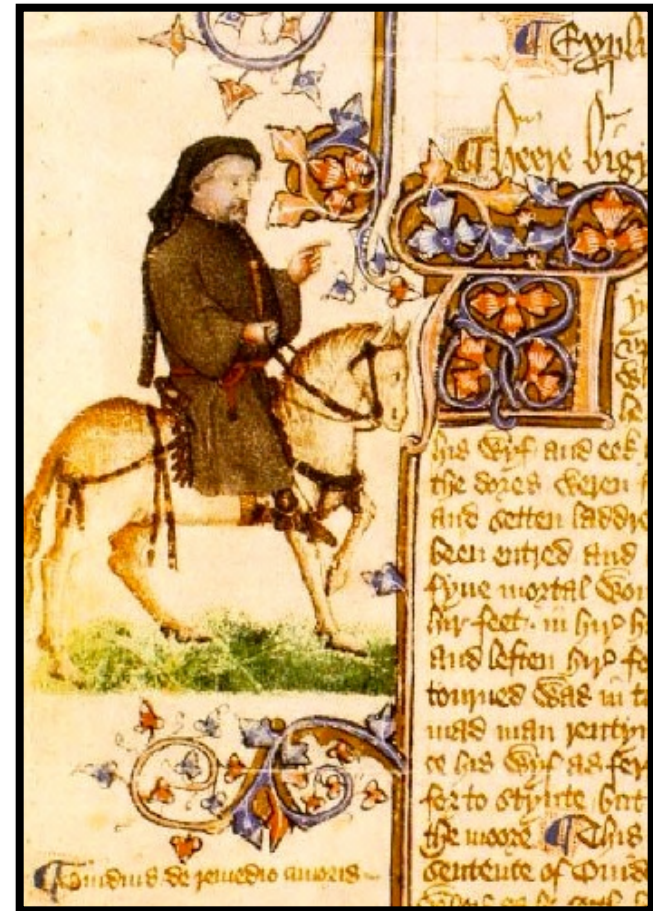 Expli
Heere bigy
his wyf and eek
the dores weren
and setten laddre
been entred and
fyue mortal wou
hir feet. in hir h
and leften hir fo
tourned was in t
mad man rentyn
ce his wyf as fer
for to stynte but
the moore This
sentence of Ouid
Ouidius. de remedio amoris